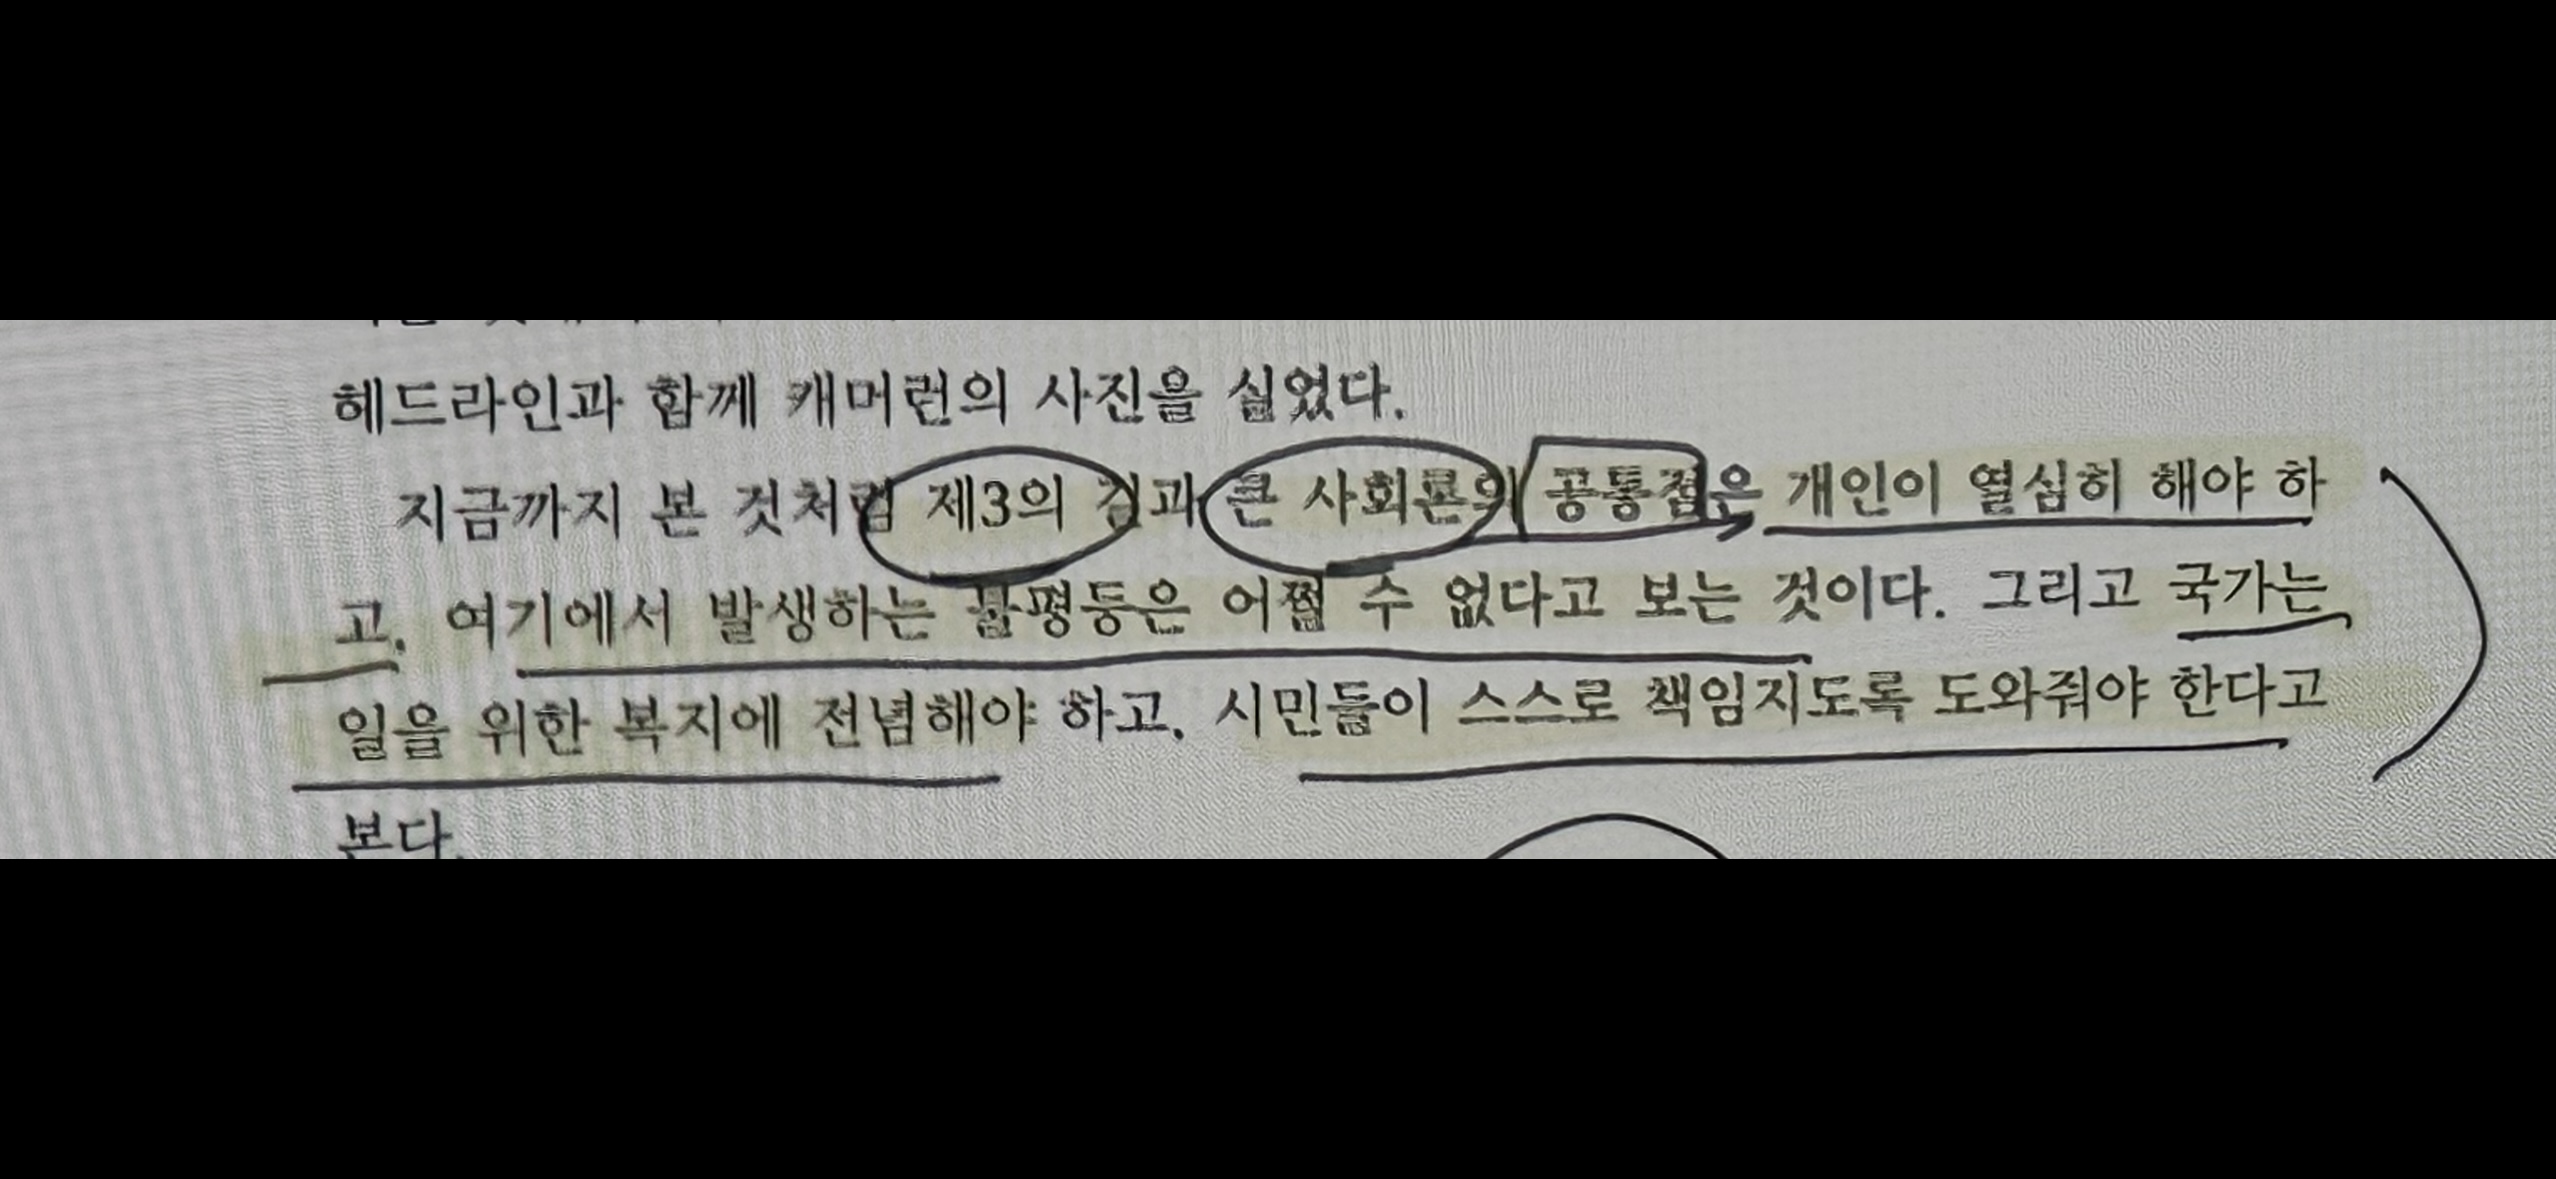 헤드라인과 함께 캐머런의 사진을 실었다.
지금까지 본 것처럼 제3의 길과 큰 사회론의 공통점은 개인이 열심히 해야 하
고, 여기에서 발생하는 불평등은 어쩔 수 없다고 보는 것이다. 그리고 국가는
일을 위한 복지에 전념해야 하고, 시민들이 스스로 책임지도록 도와줘야 한다고
본다.